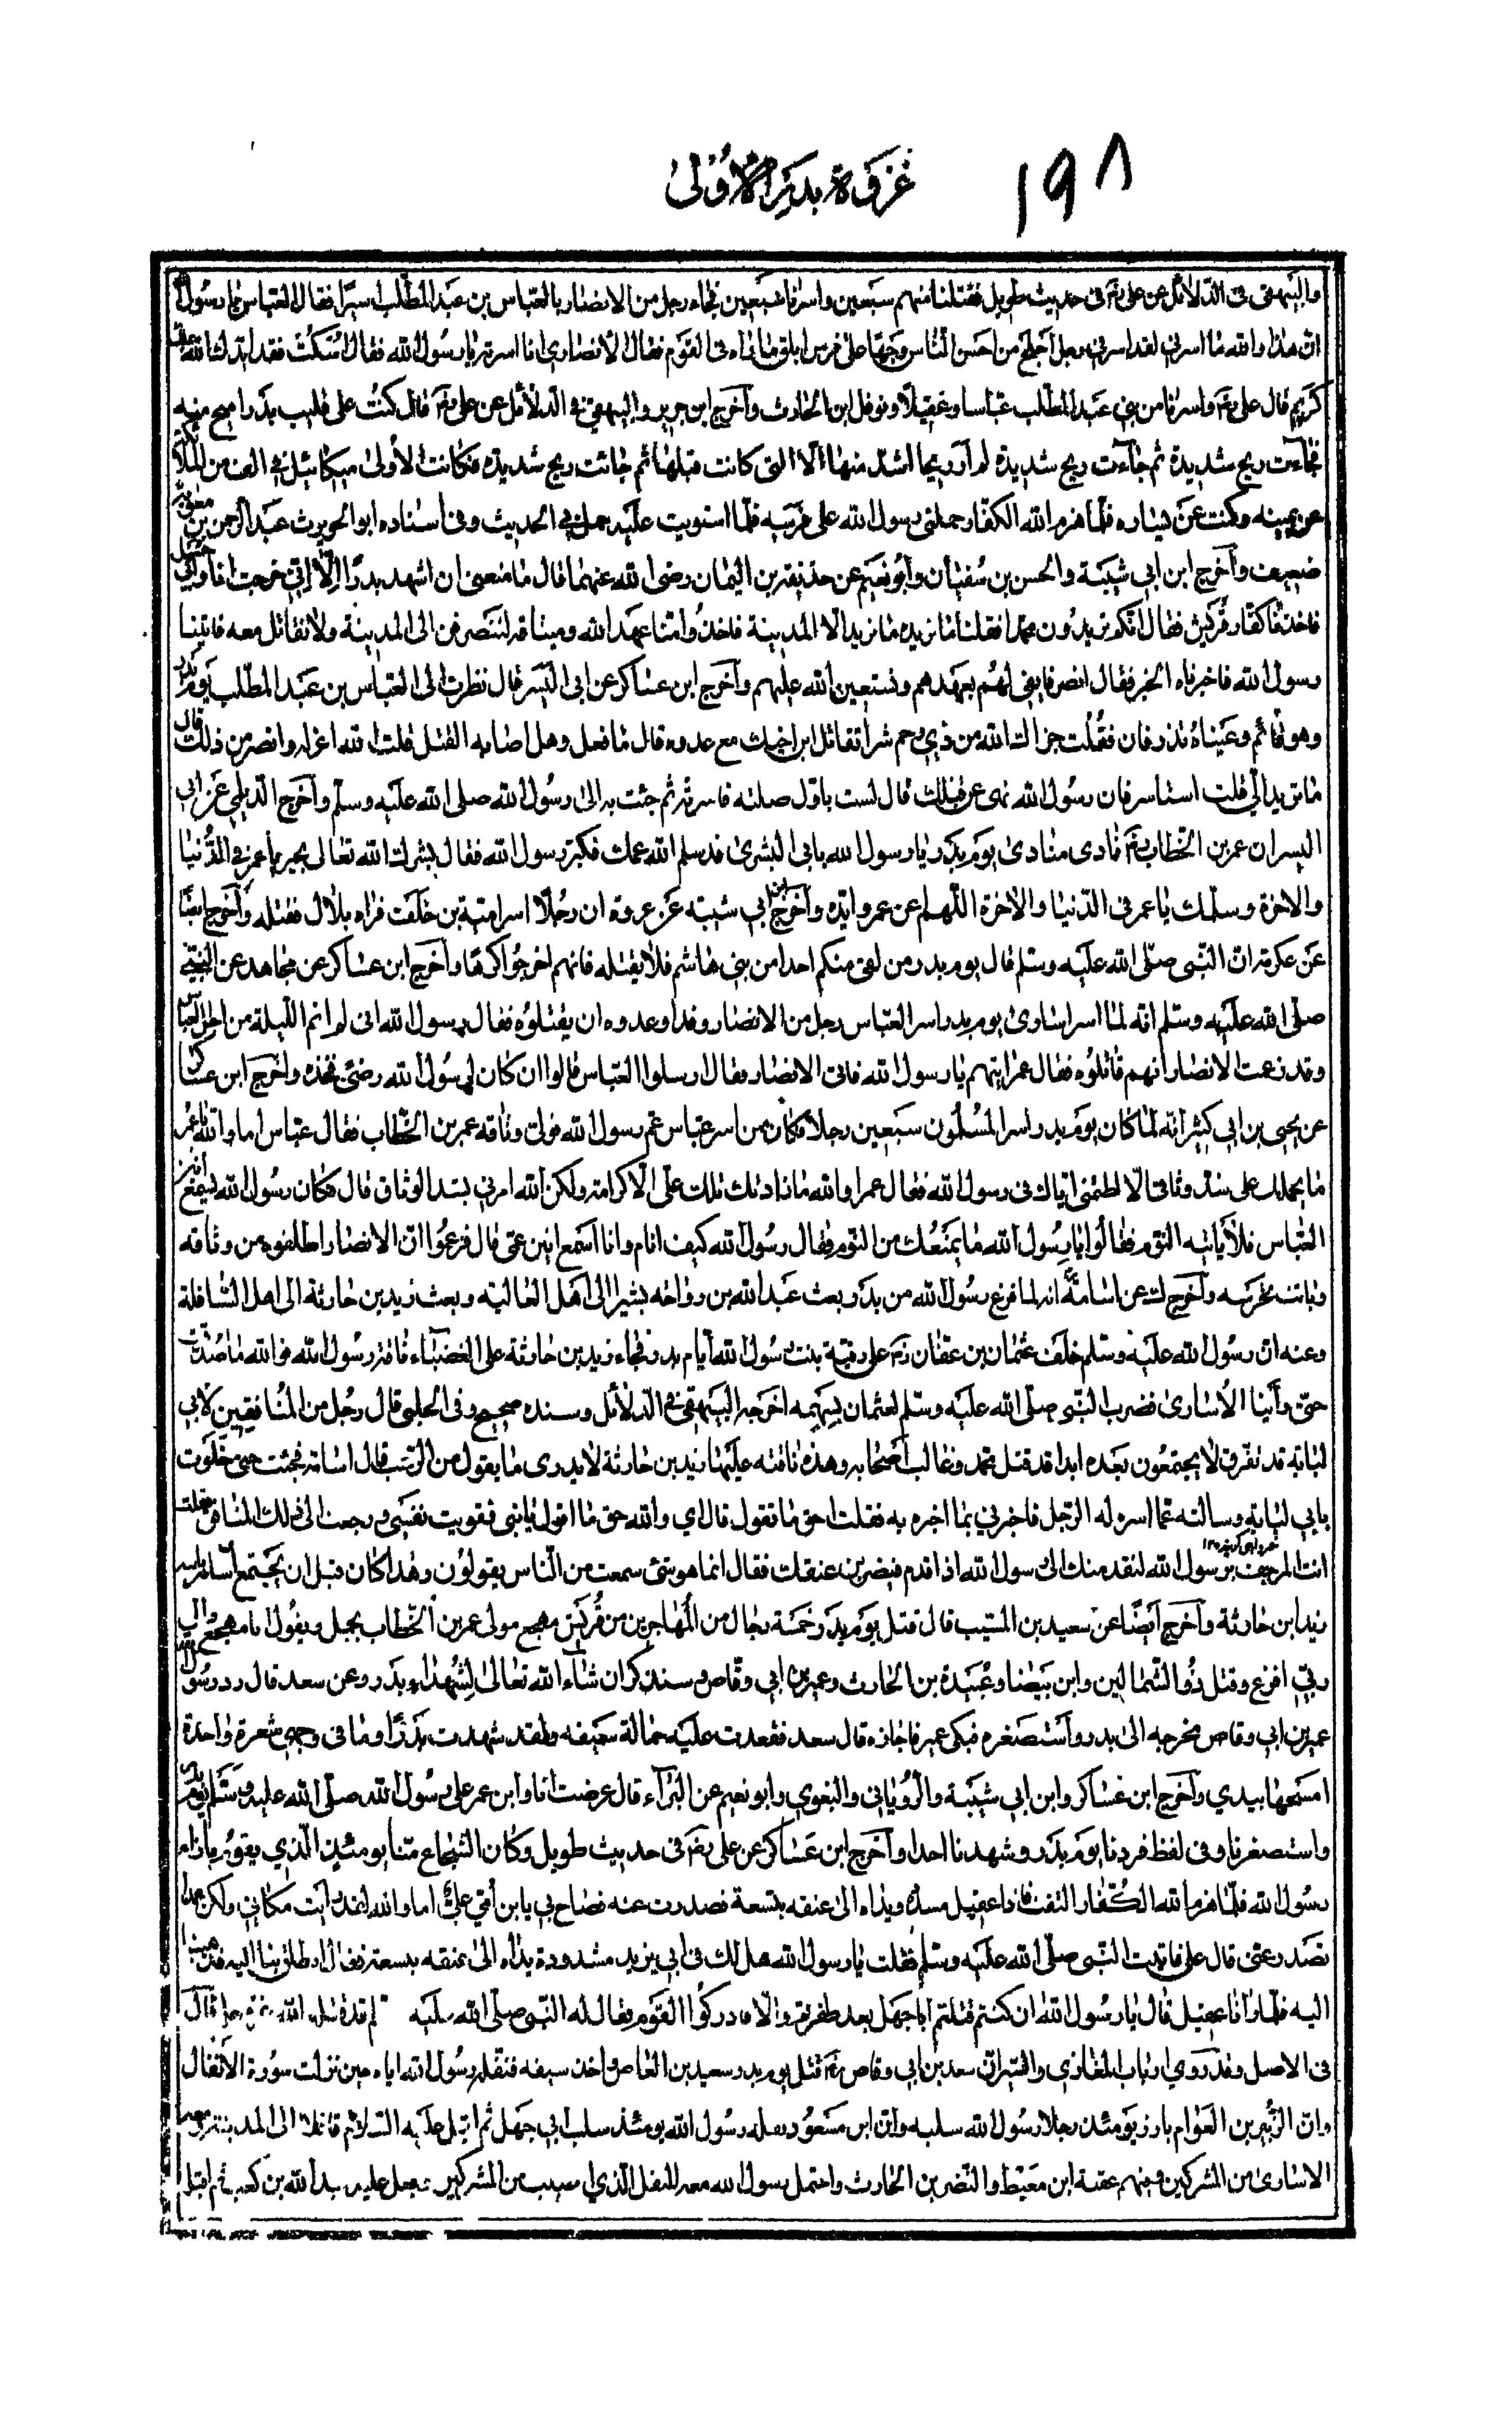 ١٩٨
غزوة بدر الاولى
والبيهقى فى الدلائل عن على رض فى حديث طويل فقتلنا منهم سبعين واسرنا سبعين فجاء رجل من الانصار بالعباس بن عبد المطلب اسيرا فقال العباس يا رسول الله
ان هذا والله ما اسرنى لقد اسرنى رجل اجلح من احسن الناس وجها على فرس ابلق ما اراه فى القوم فقال الانصارى انا اسرته يا رسول الله فقال اسكت فقد ايدك الله بملك
كريم قال على رض واسرنا من بنى عبد المطلب عباسا وعقيلا ونوفل ابن الحارث وآخرج ابن جرير والبيهقى فى الدلائل عن على رض قال كنت على قليب بدر اميح منه
فجاءت ريح شديدة ثم جاءت ريح شديدة لم ار ريحا اشد منها الا التى كانت قبلها ثم جائت ريح شديدة فكانت الاولى ميكائيل فى الف من الملائكة
عن يمينه وكنت عن يساره فلما هزم الله الكفار حملنى رسول الله على فرسه فلما استويت عليه حمل بى الحديث وفى اسناده ابو الحويرث عبد الرحمن بن معوية
ضعيف وآخرج ابن ابى شيبة والحسن بن سفيان وأبو نعيم عن حذيفة بن اليمان رضى الله عنهما قال ما منعنى ان اشهد بدرا الا انى خرجت انا وابى حسيل
فاخذنا كفار قريش فقال انكم تريدون محمدا فقلنا ما نريده ما نريد الا المدينة فاخذوا منا عهد الله وميثاقه لننصرفن الى المدينة ولا نقاتل معه فاتينا
رسول الله فاخبرناه الخبر فقال انصرفا يفى لهم بعهدهم ونستعين الله عليهم وآخرج ابن عساكر عن ابى اليسر قال نظرت الى العباس بن عبد المطلب يوم بدر
وهو قائم وعيناه تذرفان فقلت جزاك الله من ذى رحم شرا تقاتل ابن اخيك مع عدوه قال ما فعل وهل اصابه القتل قلت الله اعز له وانصر من ذلك قال
ما تريد الى قلت استاسر فان رسول الله نهى عن قتلك قال ليست باول صلته فاسرته ثم جئت به الى رسول الله صلى الله عليه وسلم وآخرج الديلمى عن ابى
اليسر ان عمر بن الخطاب رض نادى منادى يوم بدر يا رسول الله بابى البشرى قد سلم الله عمك فكبر رسول الله فقال بشرك الله تعالى بخير يا عمر فى الدنيا
والاخرة وسلمك يا عمر فى الدنيا والاخرة اللهم اعز عمر وايده وآخرج ابن ابى شيبة عن عروة ان رجلا اسر امية بن خلف فراه بلال فقتله وآخرج ايضا
عن عكرمة ان النبى صلى الله عليه وسلم قال يوم بدر من لقى منكم احدا من بنى هاشم فلا يقتله فانهم اخرجوا كرها وآخرج ابن عساكر عن مجاهد عن النبى
صلى الله عليه وسلم انه لما اسر اسارى يوم بدر اسر العباس رجل من الانصار وقد اوعدوه ان يقتلوه فقال رسول الله انى لم انم الليلة من اجل العباس
وقد زعمت الانصار انهم قاتلوه فقال عمر اتيهم يا رسول الله فاتى الانصار فقال ارسلوا العباس قالوا ان كان لرسول الله رضى فخذه واخرج ابن عساكر
عن يحيى بن ابى كثير انه لما كان يوم بدر اسر المسلمون سبعين رجلا فكان ممن اسر عباس عم رسول الله فولى وثاقه عمر بن الخطاب فقال عباس اما والله يا عمر
ما يحملك على شد وثاقى الا لطمتى اياك فى رسول الله فقال عمر والله ما زادتك تلك على الا كرامة ولكن الله امرنى بشد الوثاق قال فكان رسول الله يسمع انين
العباس فلا ياتيه النوم فقالوا يا رسول الله ما يمنعك من النوم فقال رسول الله كيف انام وانا اسمع انين عمى قال فزعموا ان الانصار اطلقوه من وثاقه
وباتت تحرسه وآخرج ك عن اسامة انه لما فرغ رسول الله من بدر وبعث عبد الله بن رواحة بشيرا الى اهل العالية وبعث زيد بن حارثة الى اهل السافلة
وعنه ان رسول الله عليه وسلم خلف عثمان بن عفان رض على رقية بنت رسول الله ايام بدر فجاء زيد بن حارثة على الغضباء ناقة رسول الله فوالله ما صدقت
حتى رأينا الاسارى فضرب النبى صلى الله عليه وسلم لعثمان بسهمه اخرجه البيهقى فى الدلائل وسنده صحيح وفى الحلبى قال رجل من المنافقين لابى
لبابة قد تفرق لا يجتمعون بعده ابدا قد قتل محمد وغالب اصحابه وهذه ناقته عليها زيد بن حارثة لا يدرى ما يقول من الرعب قال اسامة فجئت حتى خلوت
بابى لبابة وسالته عما اسره له الرجل فاخبرنى بما اخبره به فقلت احق ما تقول قال اى والله حق ما اقول يا بنى فقويت نفسى ورجعت الى ذلك المنافق فقلت
انت المرجف برسول الله لنقدمنك الى رسول الله اذا قدم فيضربن عنقك فقال انما هو شئ سمعت من الناس يقولون وهذا كان قبل ان يجتمع اسامة بابيه
زيد ابن حارثة وآخرج ايضا عن سعيد بن المسيب قال قتل يوم بدر خمسة رجال من المهاجرين من قريش مهجع مولى عمر بن الخطاب يحمل ويقول انا مهجع والى
ربى افزع وقتل ذو الشمالين وابن بيضا وعبيدة بن الحارث وعمير بن ابى وقاص وسنذكر ان شاء الله تعالى لشهداء بدر وعن سعد قال رد رسول الله
عمير بن ابى وقاص مخرجه الى بدر واستصغره فبكى عمير فاجازه قال سعد فقعدت عليه حمالة سيفه ولقد شهدت بدرا وما فى وجهى شعرة واحدة
امسحها بيدى وآخرج ابن عساكر وابن ابى شيبة والرويانى والبغوى وابو نعيم عن البراء قال عرضت انا وابن عمر على رسول الله صلى الله عليه وسلم يوم بدر
واستصغرنا وفى لفظ فردنا يوم بدر وشهدنا احدا وآخرج ابن عساكر عن على رض فى حديث طويل وكان الشجاع منا يومئذ الذى يقوم بازاء
رسول الله فلما هزم الله الكفار التفت فاذا عقيل مشدة ويداه الى عنقه بنسعة فصدرت عنه فصاح بى يا بن امى على اما والله لقد رايت مكانى ولكن عمدا
تصد عنى قال على فاتيت النبى صلى الله عليه وسلم فقلت يا رسول الله هل لك فى ابى يزيد مشدودة يداه الى عنقه بنسعة فقال انطلق بنا اليه فمضينا
اليه فلما رآنا عقيل قال يا رسول الله ان كنتم قتلتم ابا جهل بعد ظفرتم والا فادركوا القوم فقال له النبى صلى الله عليه
فى الاصل وقد روى ارباب المغازى والسير ان سعد بن ابى وقاص رض قتل يوم بدر سعيد بن العاص واخذ سيفه فنفله رسول الله اياه حين نزلت سورة الانفال
وان الزبير بن العوام بارز يومئذ رجلا رسول الله سلبه وان ابن مسعود نفله رسول الله يومئذ سلب ابى جهل ثم اقبل عليه السلام قافلا الى المدينة ومعه
الاسارى من المشركين وفيهم عقبة ابن معيط والنضر بن الحارث واحتمل رسول الله معه النفل الذى اصيب من المشركين وجعل عليه عبد الله بن كعب ثم اقبل